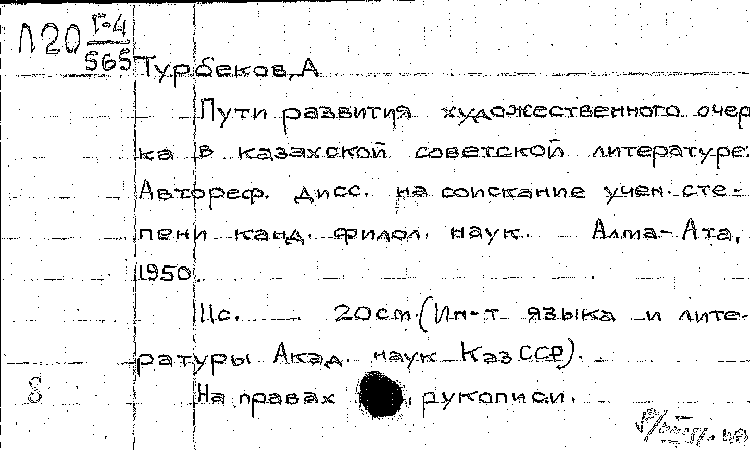 Л20 Г-4
565
Турбеков, А
Пути развития художественного очер
ка в казахской советской литературе:
Автореф. дисс. на соискание учен. сте-
пени канд. филол. наук. Алма-Ата,
1950.
11с. 20см. (Ин-т языка и лите-
ратуры Акад. наук КазССР).
8 На правах рукописи.